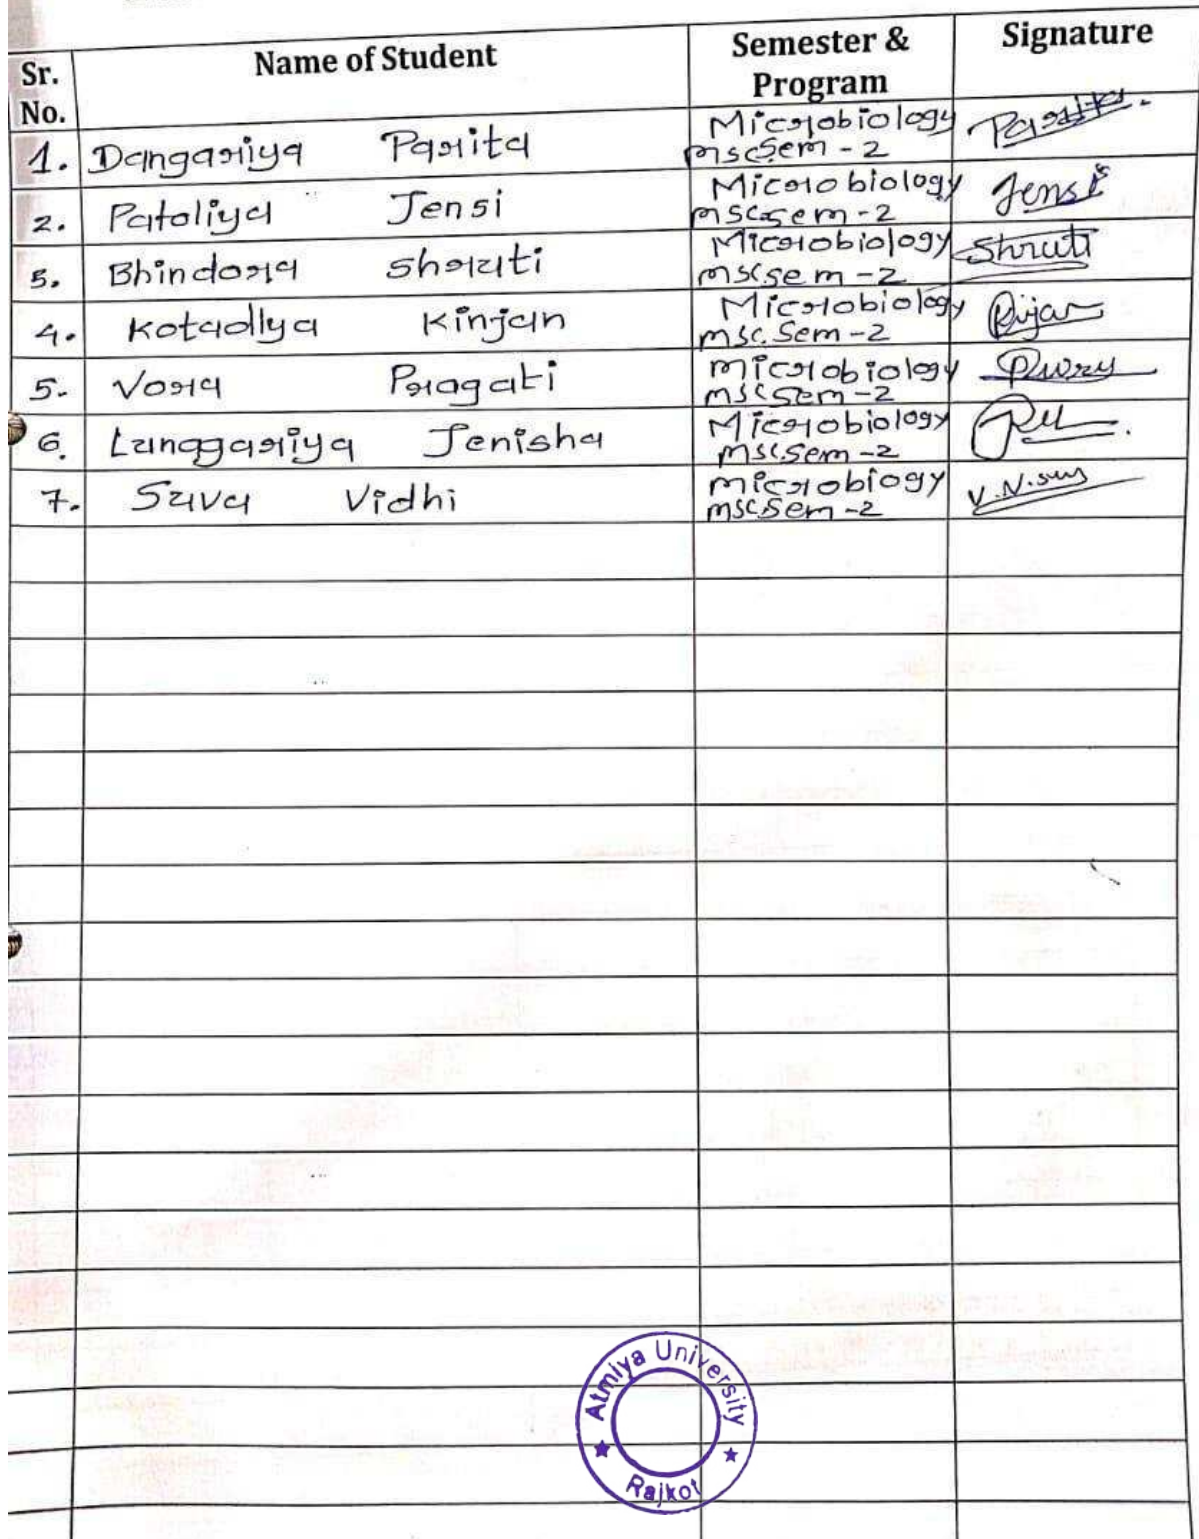 Sr. No. Name of Student Semester & Program Signature
1. Dangariya Parita Microbiology msc sem - 2 Parita.
2. Patoliya Jensi Microbiology msc.sem - 2 Jensi
5. Bhindora shruti Microbiology msc.sem - 2 Shruti
4. Kotadlya Kinjan Microbiology msc.Sem - 2
5. Vora Pragati microbiology msc sem - 2
6. Lunagariya Jenisha Microbiology msc.sem - 2
7. Suva Vidhi microbiogy msc.sem - 2
Atmiya University
Rajkot